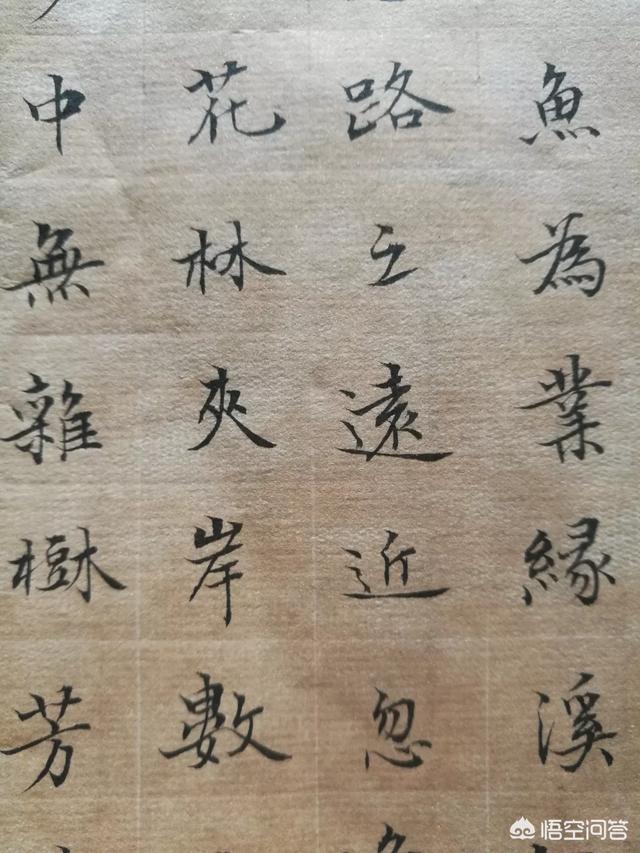 魚為業縁溪
路之遠近忽
花林夾岸數
中無雜樹芳
悟空问答